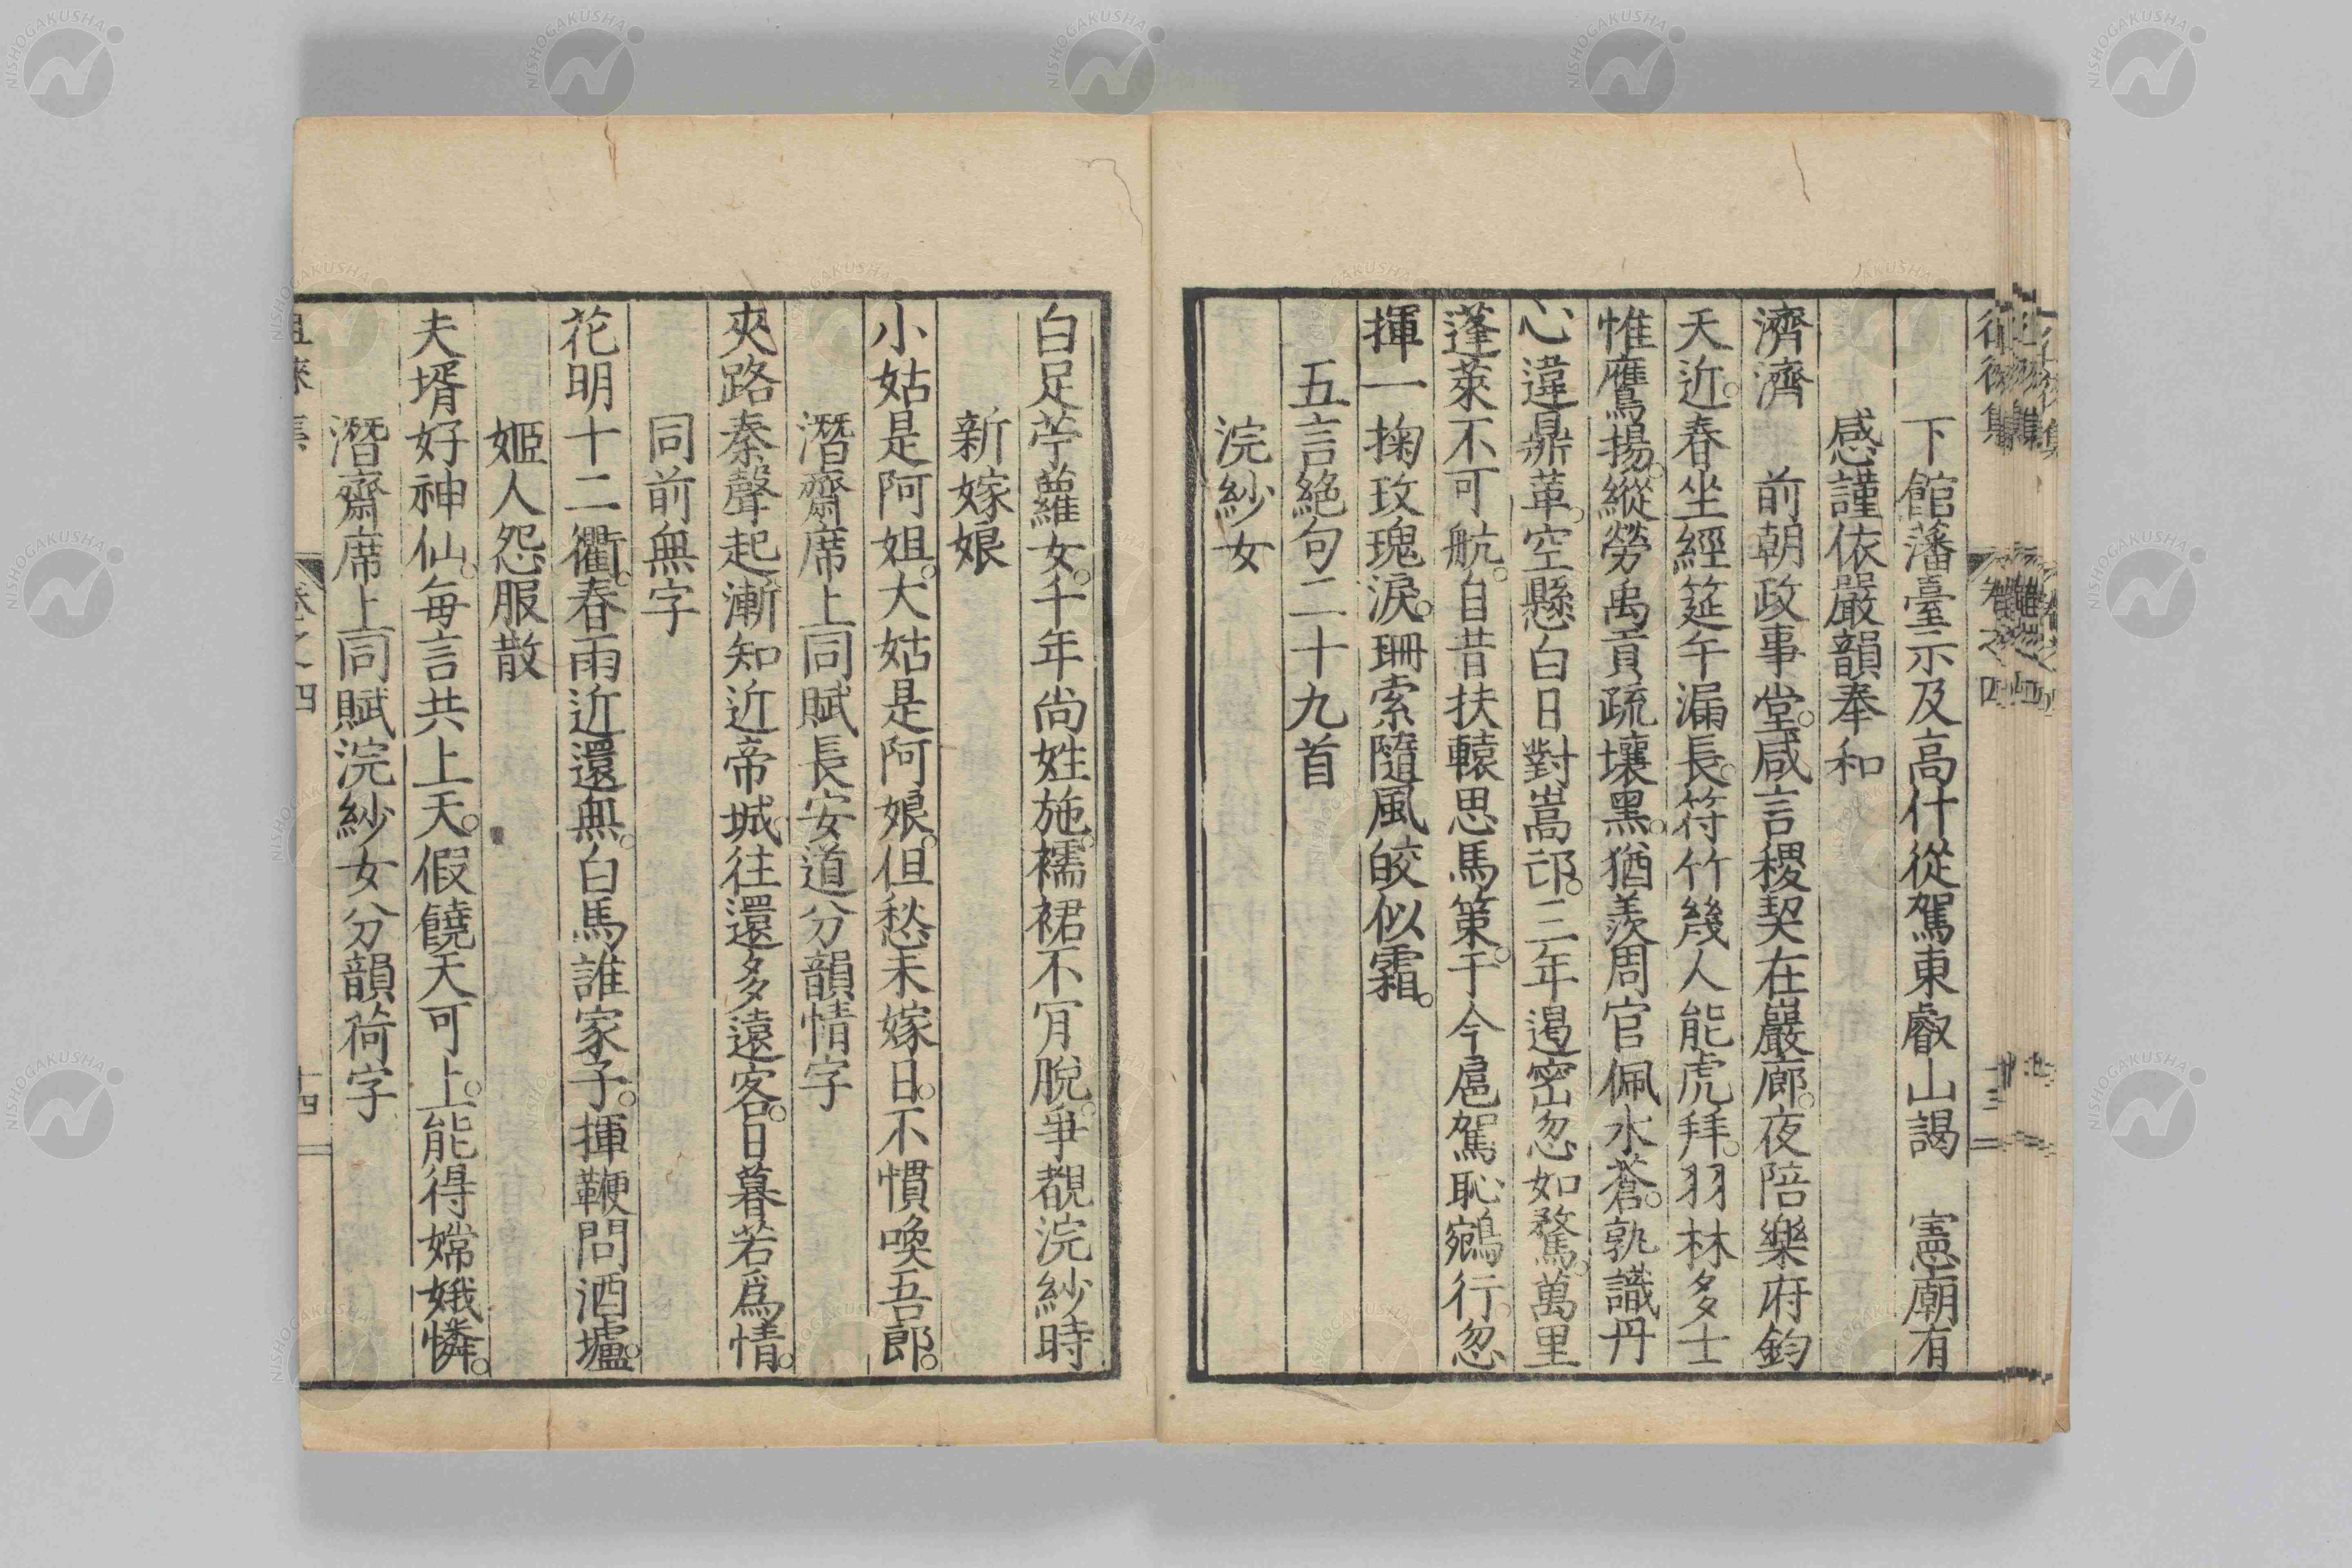 下館藩臺示及高什從駕東叡山謁　憲廟有
感謹依嚴韻奉和
濟濟　前朝政事堂。咸言稷契在巖廊。夜陪樂府鈞
天近。春坐經筵午漏長。符竹幾人能虎拜。羽林多士
惟鷹揚。縱勞禹貢疏壤黑。猶羨周官佩水蒼。孰識丹
心違鼎革。空懸白日對嵩邙。三年遏密忽如騖。萬里
蓬萊不可航。自昔扶轅思馬策。于今扈駕恥鵷行。忽
揮一掬玫瑰淚。珊索隨風皎似霜。
五言絕句二十九首
浣紗女
白足苧蘿女。千年尚姓施。襦裙不肎脫。爭覩浣紗時
新嫁娘
小姑是阿姐。大姑是阿娘。但愁未嫁日。不慣喚吾郎。
潛齋席上同賦長安道分韻情字
夾路秦聲起。漸知近帝城。往還多遠客。日暮若爲情。
同前無字
花明十二衢。春雨近還無。白馬誰家子。揮鞭問酒壚。
姬人怨服散
夫壻好神仙。每言共上天。假饒天可上。能得嫦娥憐。
潛齋席上同賦浣紗女分韻荷字
徂徠集　卷之四　十四